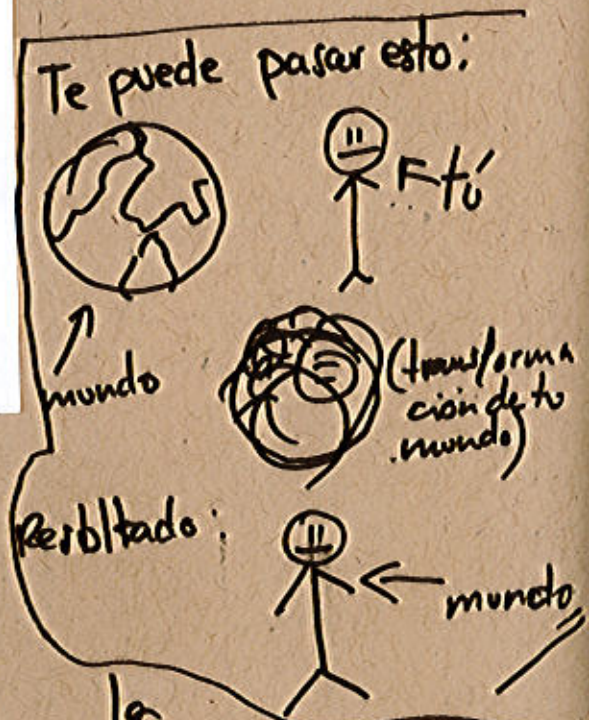 Te puede pasar esto:
tú
mundo
(transforma
ción de tu
mundo)
Resultado:
mundo
la